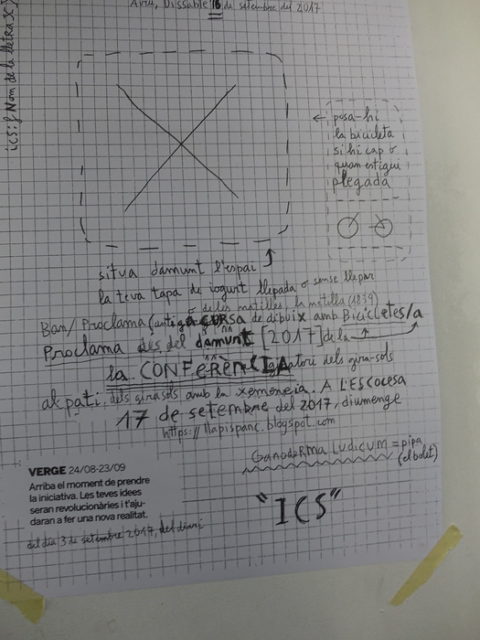 Avui, Dissabte 16 de setembre del 2017
ics: f Nom de la lletra X
← posa-hi
la bicicleta
si hi cap o
quan estigui
plegada
situa damunt l'espai
la teva tapa de iogurt llepada o sense llepar
Ban/Proclama CURSA de dibuix amb Bicicletes/a
Proclama des del damunt [2017] de la
la CONFERÈNCIA dels gira-sols
al pati: dels girasols amb la xemeneia. A L'ESCOCESA
17 de setembre del 2017, diumenge
https://llapispanc.blogspot.com
GANODERMA LUDICUM = pipa
(el bolet)
VERGE 24/08-23/09
Arriba el moment de prendre
la iniciativa. Les teves idees
seran revolucionàries i t'aju-
daran a fer una nova realitat.
del dia 3 de setembre 2017, del diari
"ICS"